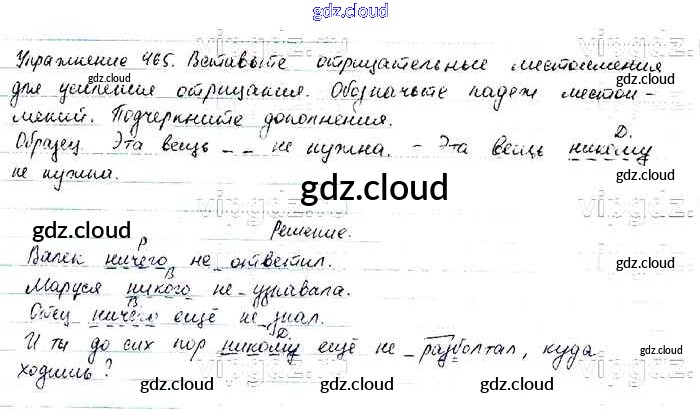 gdz.cloud
Упражнение 465. Вставьте отрицательные местоимения
для усиления отрицания. Обозначьте падеж местои-
мений. Подчеркните дополнения.
Д.
Образец Эта вещь _ _ не нужна. - Эта вещь никому
не нужна.
Решение.
Р
Валек ничего не ответил.
В
Маруся никого не узнавала.
В
Отец ничего ещё не знал.
Д.
И ты до сих пор никому ещё не разболтал, куда
ходишь?
gdz.cloud
gdz.cloud
gdz.cloud
gdz.cloud
gdz.cloud
gdz.cloud
gdz.cloud
gdz.cloud
gdz.cloud
gdz.cloud
gdz.cloud
gdz.cloud